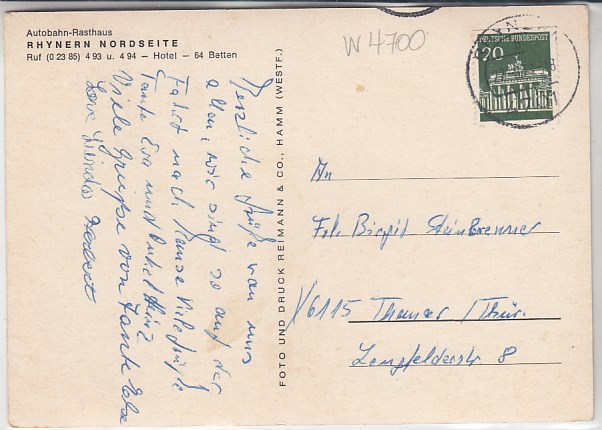 Autobahn-Rasthaus
RHYNERN NORDSEITE
Ruf (0 23 85) 4 93 u. 4 94 – Hotel – 64 Betten
W 4700
DEUTSCHE BUNDESPOST
20
Herzliche Grüße von uns
allen, wir sind so auf der
Fahrt nach Hause Viele Grüße
Tante Eva und Onkel Heinz
Viele Grüße von Tante
Herbert
FOTO UND DRUCK REIMANN & CO., HAMM (WESTF.)
An
Frl. Birgit Steinbrenner
6115 Themar / Thür.
Lengfelderstr 8